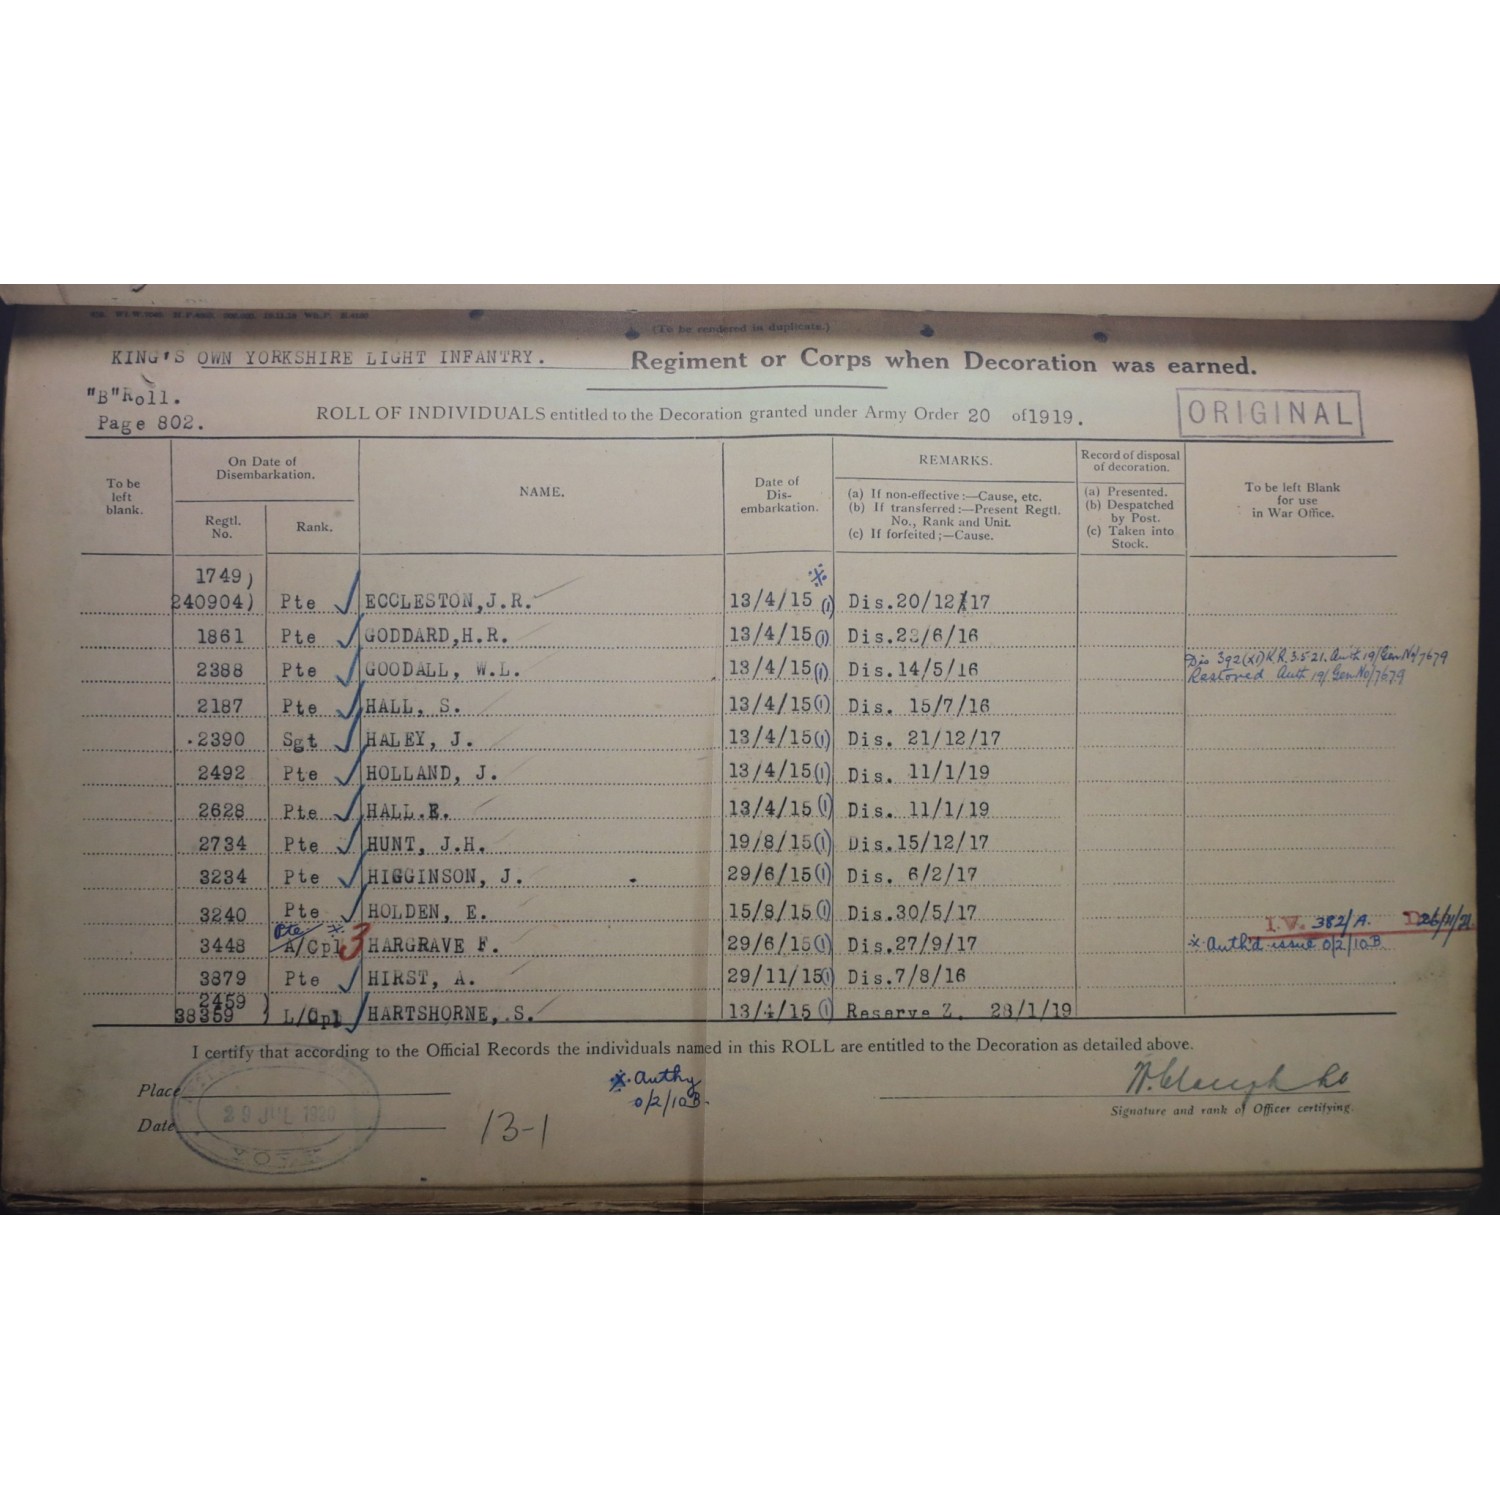 (To be rendered in duplicate.)
KING'S OWN YORKSHIRE LIGHT INFANTRY. Regiment or Corps when Decoration was earned.
"B"Roll.
Page 802.
ROLL OF INDIVIDUALS entitled to the Decoration granted under Army Order 20 of 1919.
ORIGINAL
To be left blank.
On Date of Disembarkation.
Regtl. No.
Rank.
NAME.
Date of Dis-embarkation.
REMARKS.
(a) If non-effective:—Cause, etc.
(b) If transferred:—Present Regtl. No., Rank and Unit.
(c) If forfeited;—Cause.
Record of disposal of decoration.
(a) Presented.
(b) Despatched by Post.
(c) Taken into Stock.
To be left Blank for use in War Office.
1749)
240904) Pte ECCLESTON,J.R. 13/4/15 (1) Dis.20/12/17
1861 Pte GODDARD,H.R. 13/4/15(1) Dis.23/6/16
2388 Pte GOODALL, W.L. 13/4/15(1) Dis.14/5/16 Dis 392(XI)K.R. 3.5.21. Auth 19/Gen No/7679
Restored Auth 19/Gen No/7679
2187 Pte HALL, S. 13/4/15(1) Dis. 15/7/16
.2390 Sgt HALEY, J. 13/4/15(1) Dis. 21/12/17
2492 Pte HOLLAND, J. 13/4/15(1) Dis. 11/1/19
2628 Pte HALL.E. 13/4/15(1) Dis. 11/1/19
2734 Pte HUNT, J.H. 19/8/15(1) Dis.15/12/17
3234 Pte HIGGINSON, J. 29/6/15(1) Dis. 6/2/17
3240 Pte HOLDEN, E. 15/8/15(1) Dis.30/5/17
Pte I.V. 382/A.
3448 A/Cpl 3 HARGRAVE F. 29/6/15(1) Dis.27/9/17 Auth'd issue 0/2/10B
3879 Pte HIRST, A. 29/11/15(1) Dis.7/8/16
2459
38359 ) L/Cpl HARTSHORNE, S. 13/4/15(1) Reserve Z. 28/1/19
I certify that according to the Official Records the individuals named in this ROLL are entitled to the Decoration as detailed above.
Place
Date
29 JUL 1920
YORK
13-1
Authy
0/2/10B.
Signature and rank of Officer certifying.